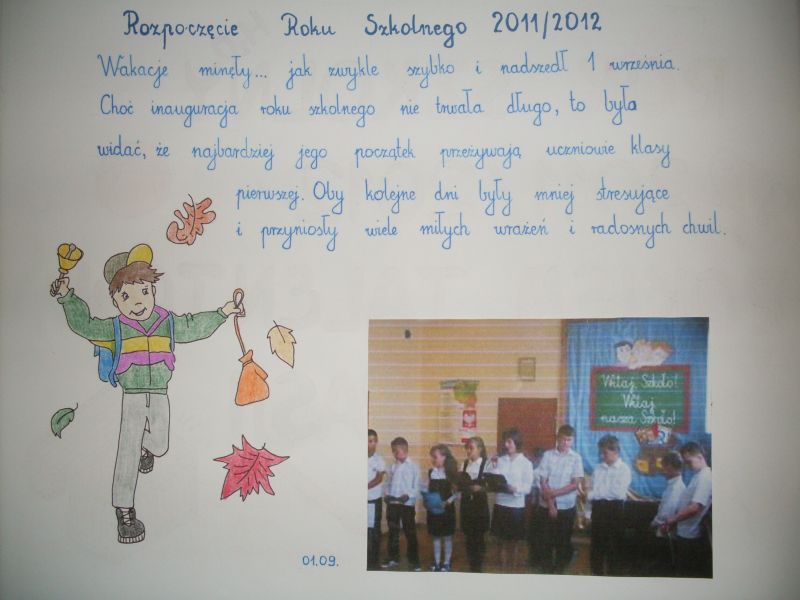 Rozpoczęcie Roku Szkolnego 2011/2012
Wakacje minęły... jak zwykle szybko i nadszedł 1 września.
Choć inauguracja roku szkolnego nie trwała długo, to była
widać, że najbardziej jego początek przeżywają uczniowie klasy
pierwszej. Oby kolejne dni były mniej stresujące
i przyniosły wiele miłych wrażeń i radosnych chwil.
Witaj, Szkoło!
Witaj
nasza Szkoło!
01.09.